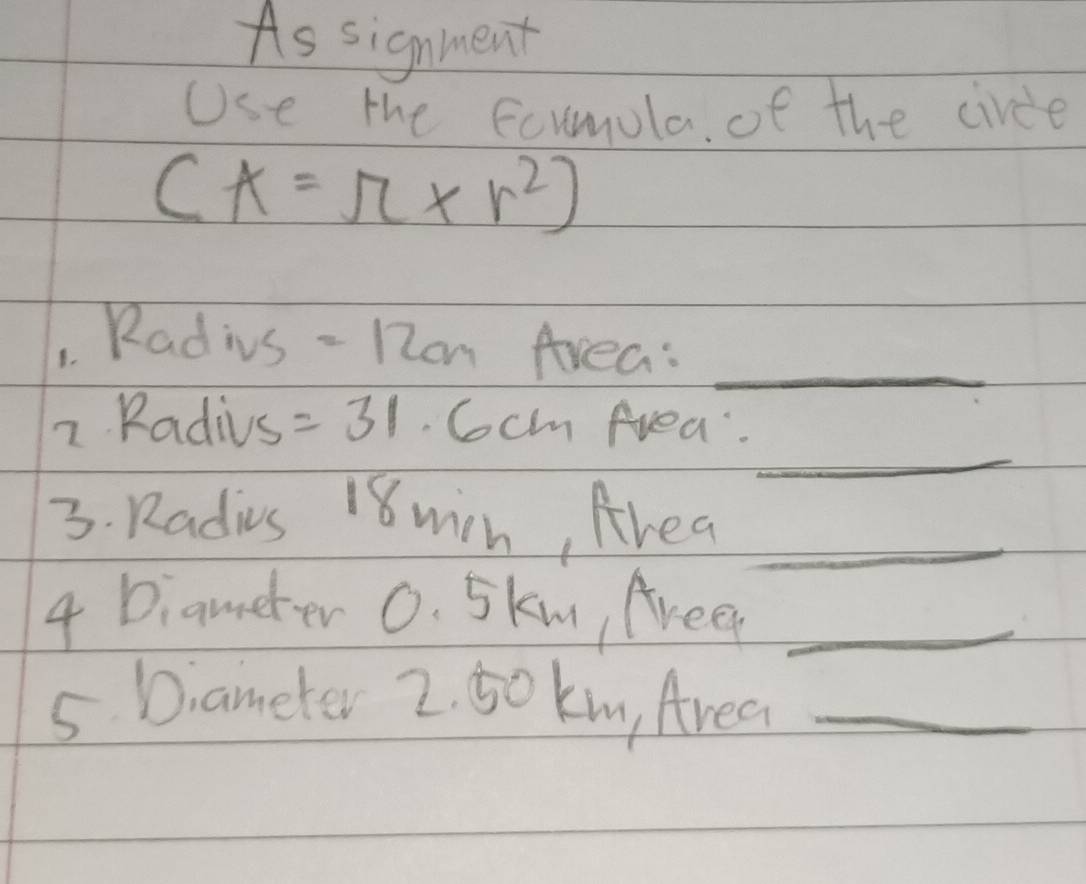 Assignment
Use the Formula. of the circle
(A = π x r²)
1. Radius = 12cm Area: ______
2. Radius = 31.6cm Area: ______
3. Radius 18 min, Area ______
4 Diameter 0.5km, Area ______
5. Diameter 2.50 km, Area ______